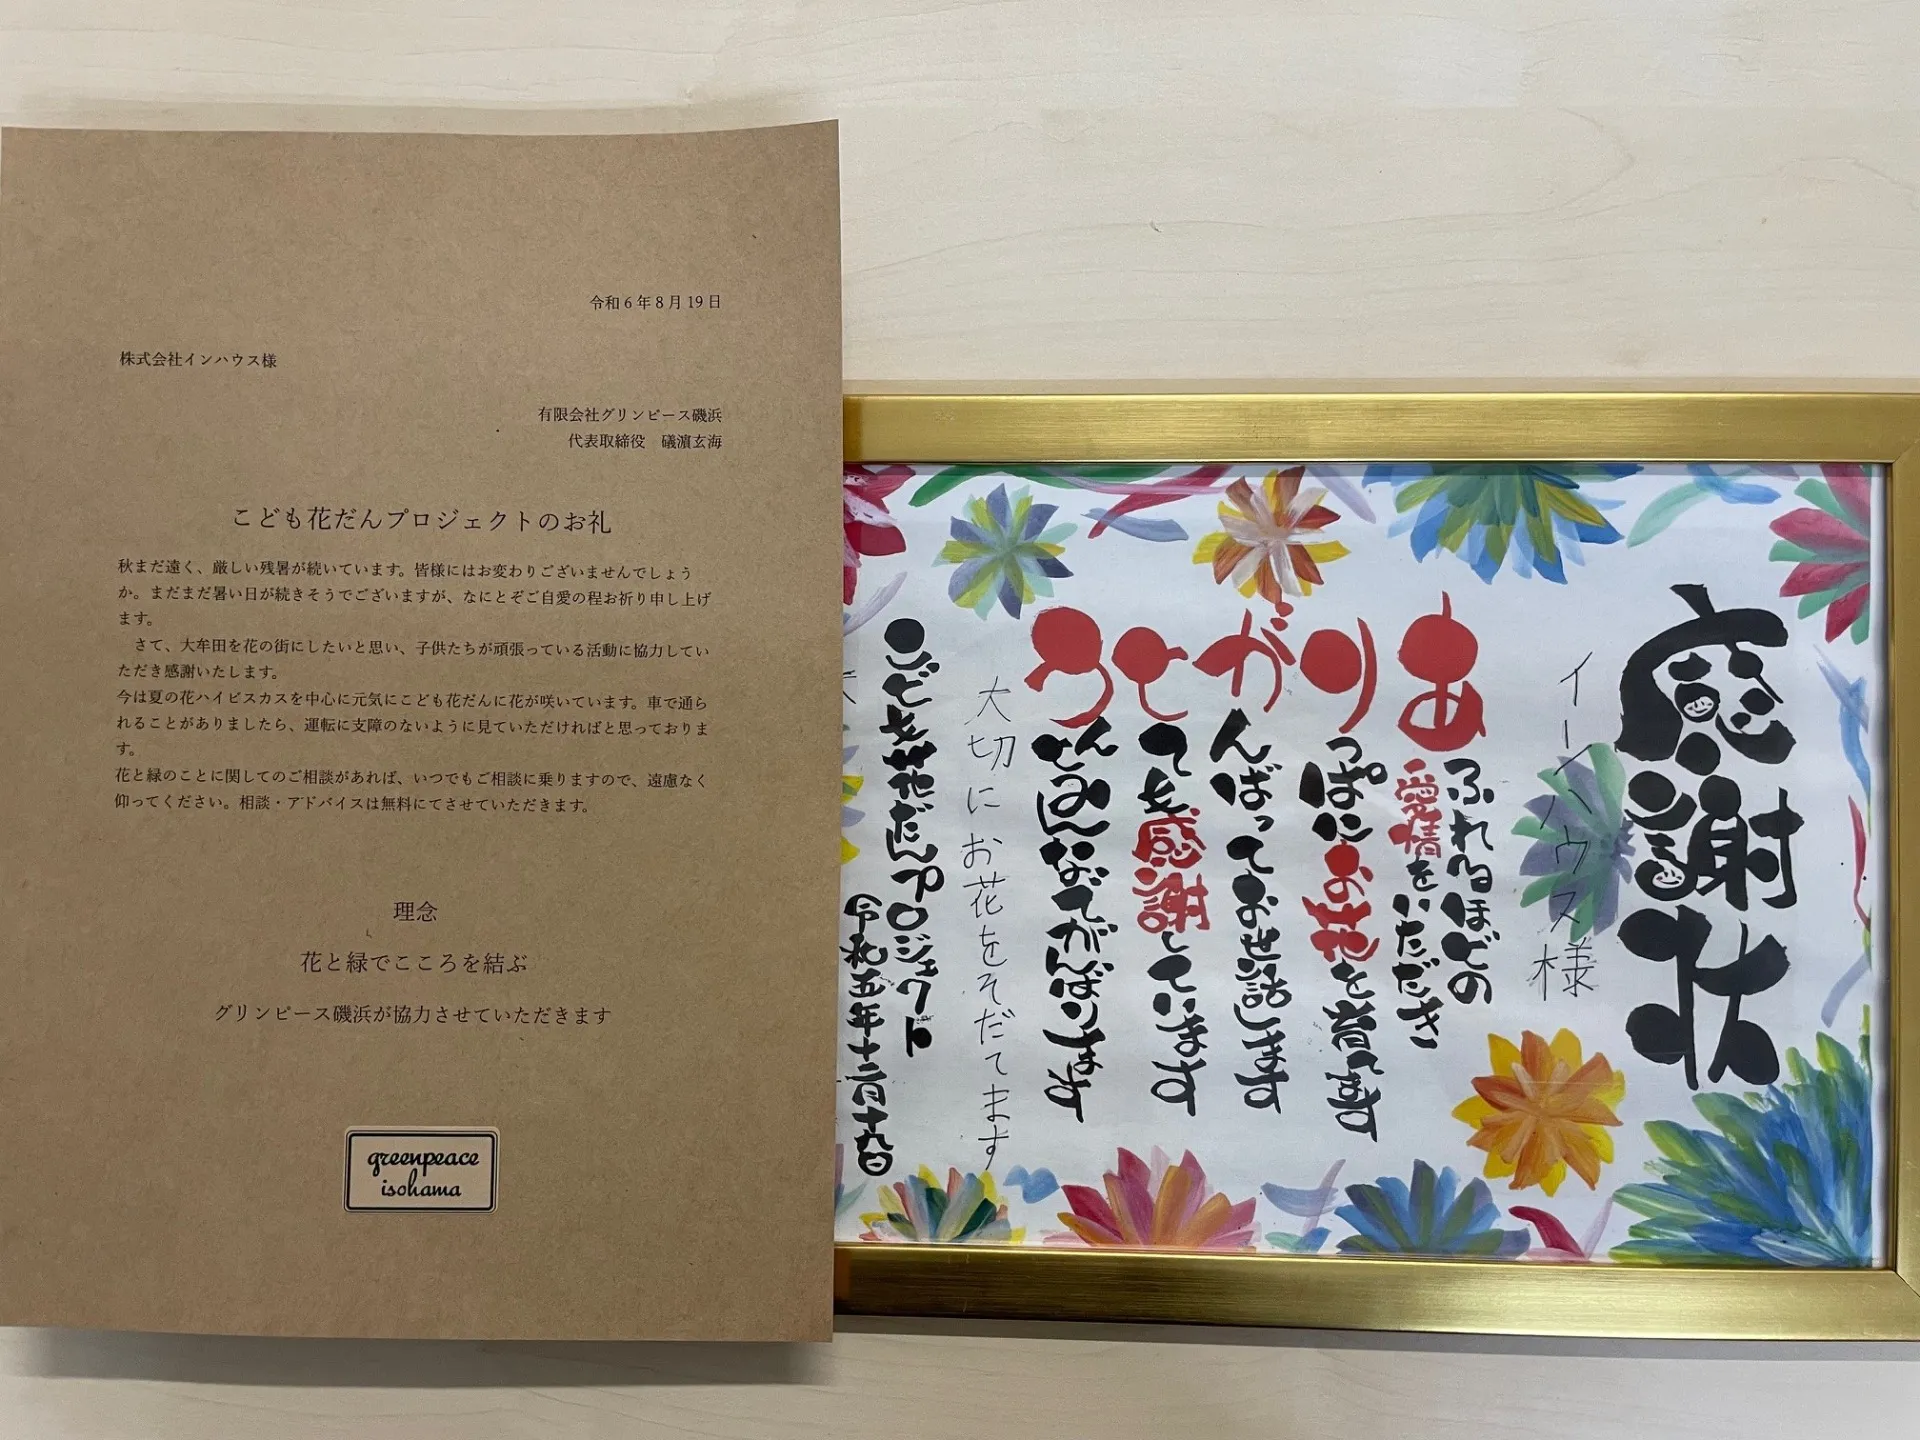 令和6年8月19日
株式会社インハウス様
有限会社グリンピース磯浜
代表取締役　礒濵玄海
こども花だんプロジェクトのお礼
秋まだ遠く、厳しい残暑が続いています。皆様にはお変わりございませんでしょう
か。まだまだ暑い日が続きそうでございますが、なにとぞご自愛の程お祈り申し上げ
ます。
　さて、大牟田を花の街にしたいと思い、子供たちが頑張っている活動に協力してい
ただき感謝いたします。
今は夏の花ハイビスカスを中心に元気にこども花だんに花が咲いています。車で通ら
れることがありましたら、運転に支障のないように見ていただければと思っておりま
す。
花と緑のことに関してのご相談があれば、いつでもご相談に乗りますので、遠慮なく
仰ってください。相談・アドバイスは無料にてさせていただきます。
理念
花と緑でこころを結ぶ
グリンピース磯浜が協力させていただきます
greenpeace
isohama
感謝状
インハウス様
あふれるほどの
愛情をいただき
りっぱにお花を育てます
がんばってお世話します
とても感謝しています
うんとみんなでがんばります
大切にお花をそだてます
こども花だんプロジェクト
令和五年十二月十九日